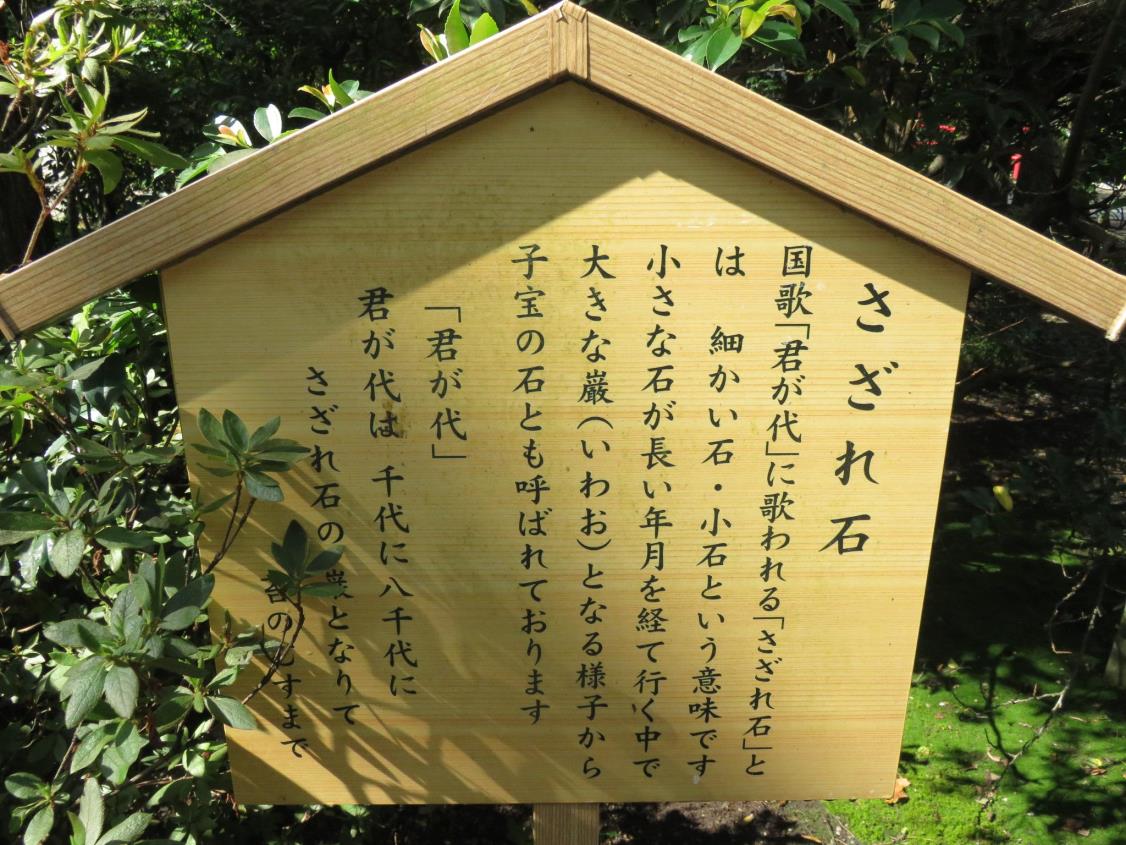 さざれ石
国歌「君が代」に歌われる「さざれ石」と
は 細かい石・小石という意味です
小さな石が長い年月を経て行く中で
大きな巌(いわお)となる様子から
子宝の石とも呼ばれております
「君が代」
君が代は 千代に八千代に
さざれ石の 巌となりて
苔のむすまで